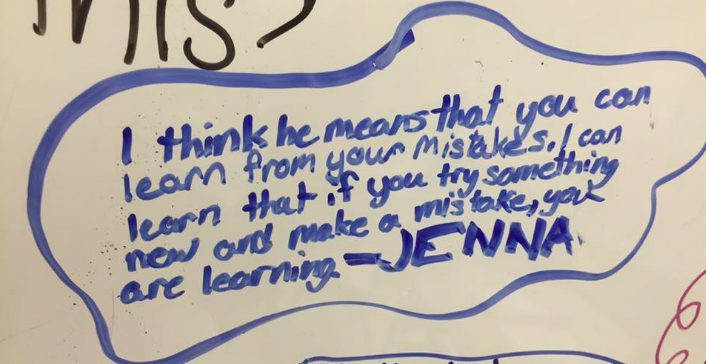 this?
I think he means that you can
learn from your mistakes. I can
learn that if you try something
new and make a mistake, you
are learning. -JENNA